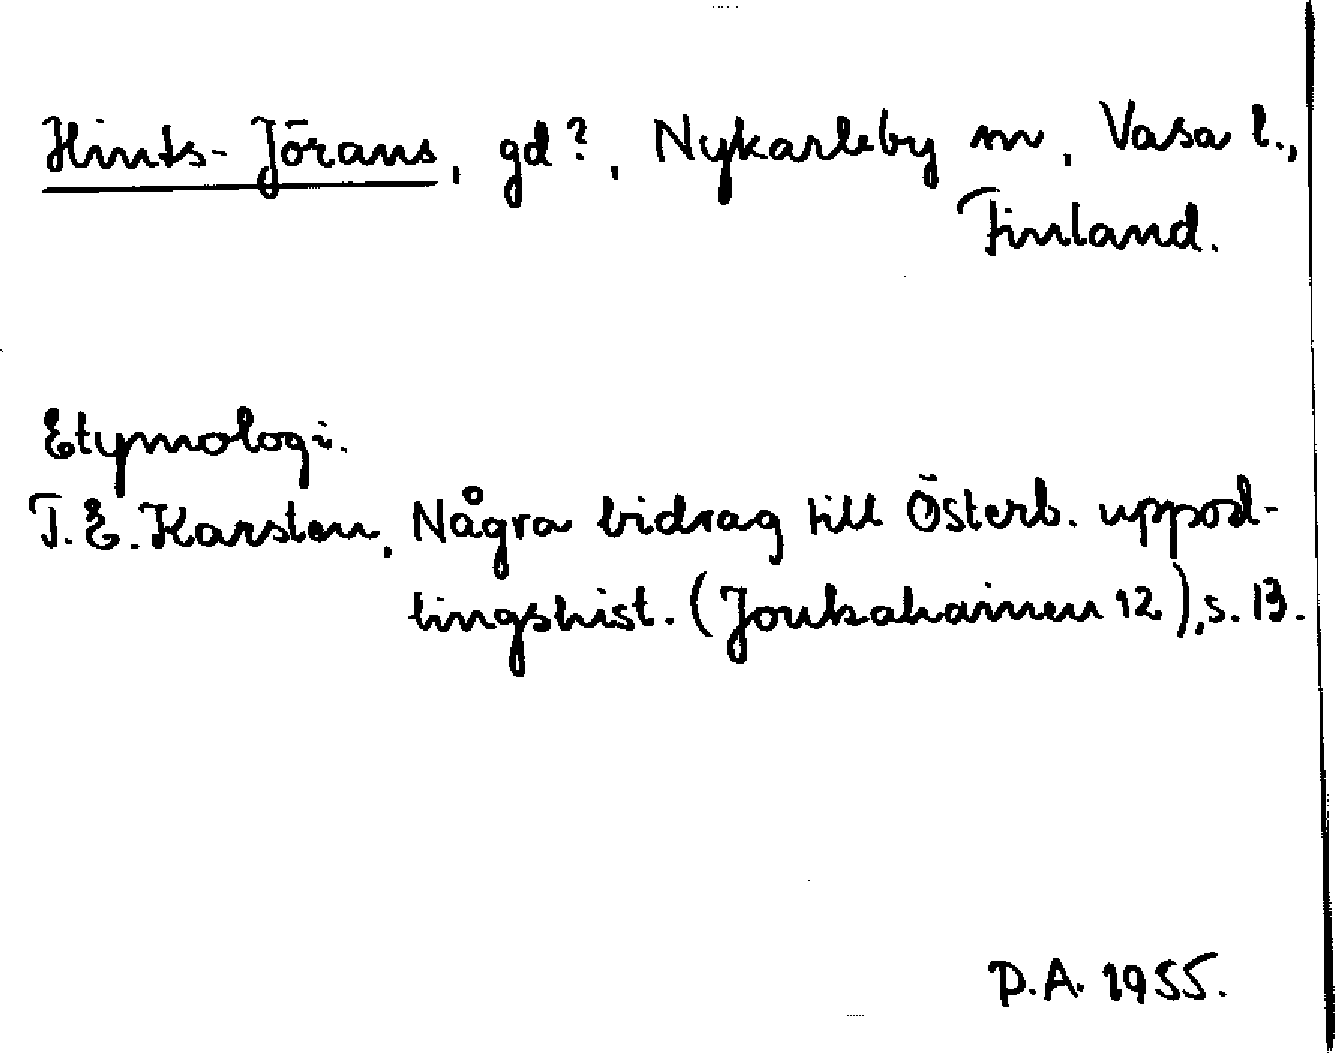 Hints-Jörans, gd?, Nykarleby sn, Vasa l.,
Finland.
Etymologi.
T.E. Karsten, Några bidrag till Österb. uppod-
lingshist. (Joukahainen 12), s. 13.
P.A. 1955.